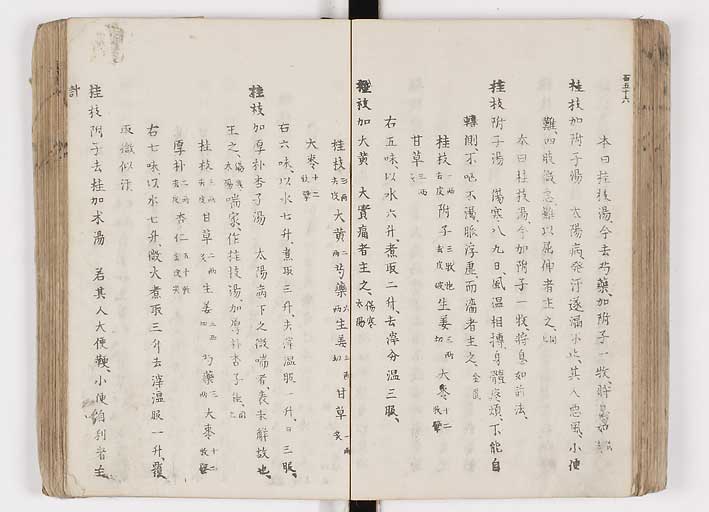 百五十六
本曰桂枝湯今去芍藥加附子一枚將息如
桂枝加附子湯　太陽病發汗遂漏不止其人惡風小便
難、四肢微急難以屈伸者主之、同
本曰桂枝湯今加附子一枚將息如前法、
桂枝附子湯　傷寒八九日風湿相搏身體疼煩不能自
轉側、不嘔不渴、脈浮虛、而濇者主之、金匱
桂枝 去皮 附子 三枚炮去皮破 生姜 三両切 大枣 十二枚擘
甘草 二両
右五味以水六升、煮取二升、去滓分温三服、
桂枝加大黄　大實痛者主之、傷寒太陽
桂枝 三両去皮 大黄 二両 芍藥 六両 生姜 三両切 甘草 二両炙
大枣 十二枚擘
右六味、以水七升、煮取三升、去滓温服一升、日三服、
桂枝加厚朴杏子湯　太陽病下之微喘者、表未解故也、
主之、傷寒太陽 喘家、作桂枝湯、加厚朴杏子佳、同
桂枝 三両去皮 甘草 二両炙 生姜 三両切 芍藥 三両 大枣 十二枚擘
厚朴 二両炙去皮 杏仁 五十枚去皮尖
右七味、以水七升、微火煮取三升去滓温服一升、覆
取微似汗
桂枝附子去桂加朮湯　若其人大便鞕、小便自利者主
計